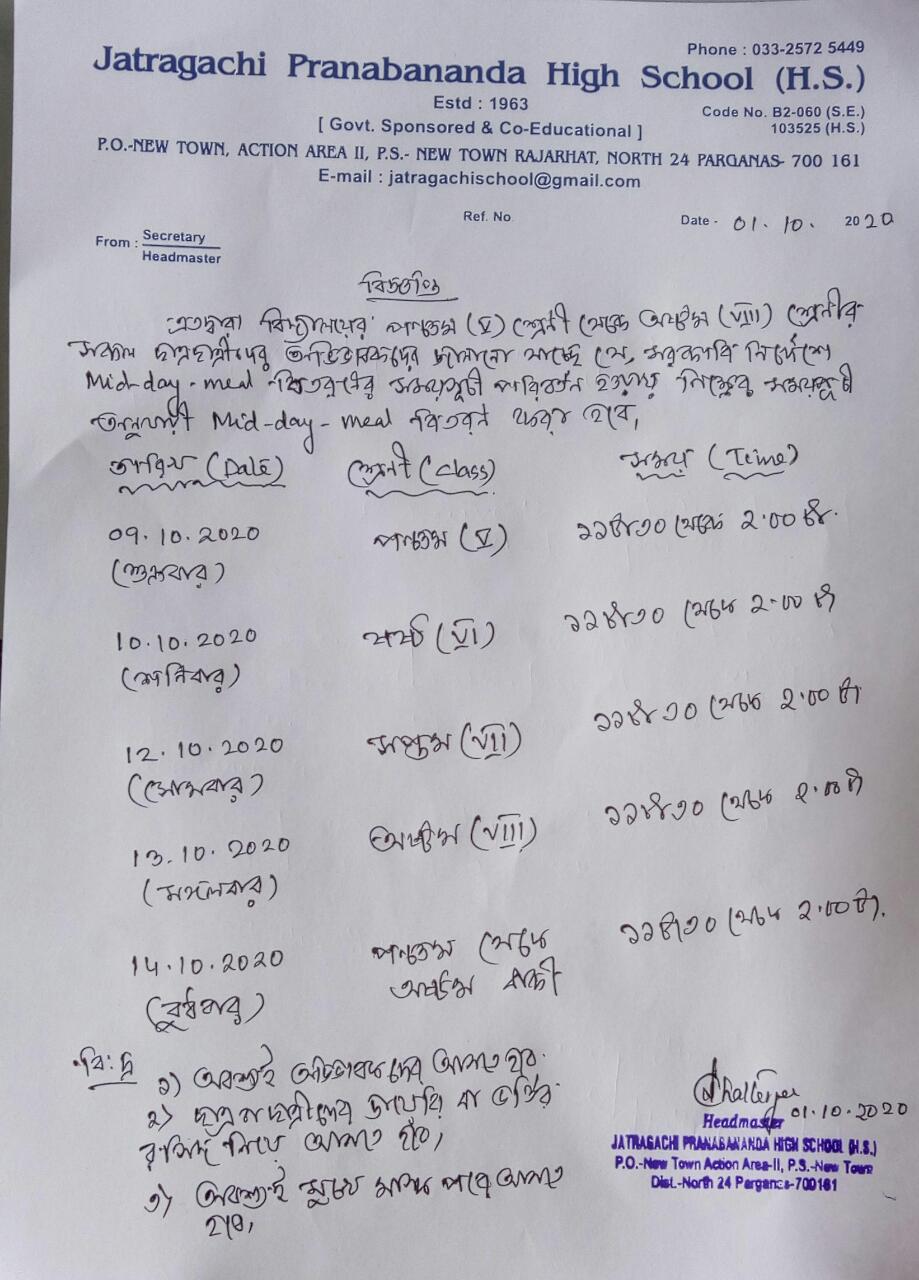 Phone : 033-2572 5449
Jatragachi Pranabananda High School (H.S.)
Estd : 1963
Code No. B2-060 (S.E.)
[ Govt. Sponsored & Co-Educational ]
103525 (H.S.)
P.O.-NEW TOWN, ACTION AREA II, P.S.- NEW TOWN RAJARHAT, NORTH 24 PARGANAS- 700 161
E-mail : jatragachischool@gmail.com
Ref. No.
Date - 01. 10. 2020
From : Secretary
Headmaster
বিজ্ঞপ্তি
এতদ্বারা বিদ্যালয়ের পঞ্চম (V) শ্রেনী থেকে অষ্টম (VIII) শ্রেনীর
সকল ছাত্রছাত্রীদের অভিভাবকদের জানানো যাচ্ছে যে, সরকারি নির্দেশে
Mid-day-meal বিতরণের সময়সূচী পরিবর্তন হওয়ায় নিম্নের সময়সূচী
অনুযায়ী Mid-day-meal বিতরণ করা হবে,
তারিখ (Date) শ্রেনী (Class) সময় (Time)
09.10.2020 পঞ্চম (V) ১১টা৩০ থেকে 2.00 টা.
(শুক্রবার)
10.10.2020 ষষ্ঠ (VI) ১১টা৩০ থেকে 2.00 টা
(শনিবার)
12.10.2020 সপ্তম (VII) ১১টা৩০ থেকে 2.00 টা
(সোমবার)
13.10.2020 অষ্টম (VIII) ১১টা৩০ থেকে 2.00 টা
(মঙ্গলবার)
14.10.2020 পঞ্চম থেকে ১১টা৩০ থেকে 2.00 টা.
(বুধবার) অষ্টম বাকী
বি: দ্র
১) অবশ্যই অভিভাবকদের আসতে হবে.
২) ছাত্র বা ছাত্রীদের ডায়েরি বা ভর্তির
রসিদ নিয়ে আসতে হবে,
৩) অবশ্যই মুখে মাস্ক পরে আসতে
হবে,
01.10.2020
Headmaster
JATRAGACHI PRANABANANDA HIGH SCHOOL (H.S.)
P.O.-New Town Action Area-II, P.S.-New Town
Dist.-North 24 Parganas-700161